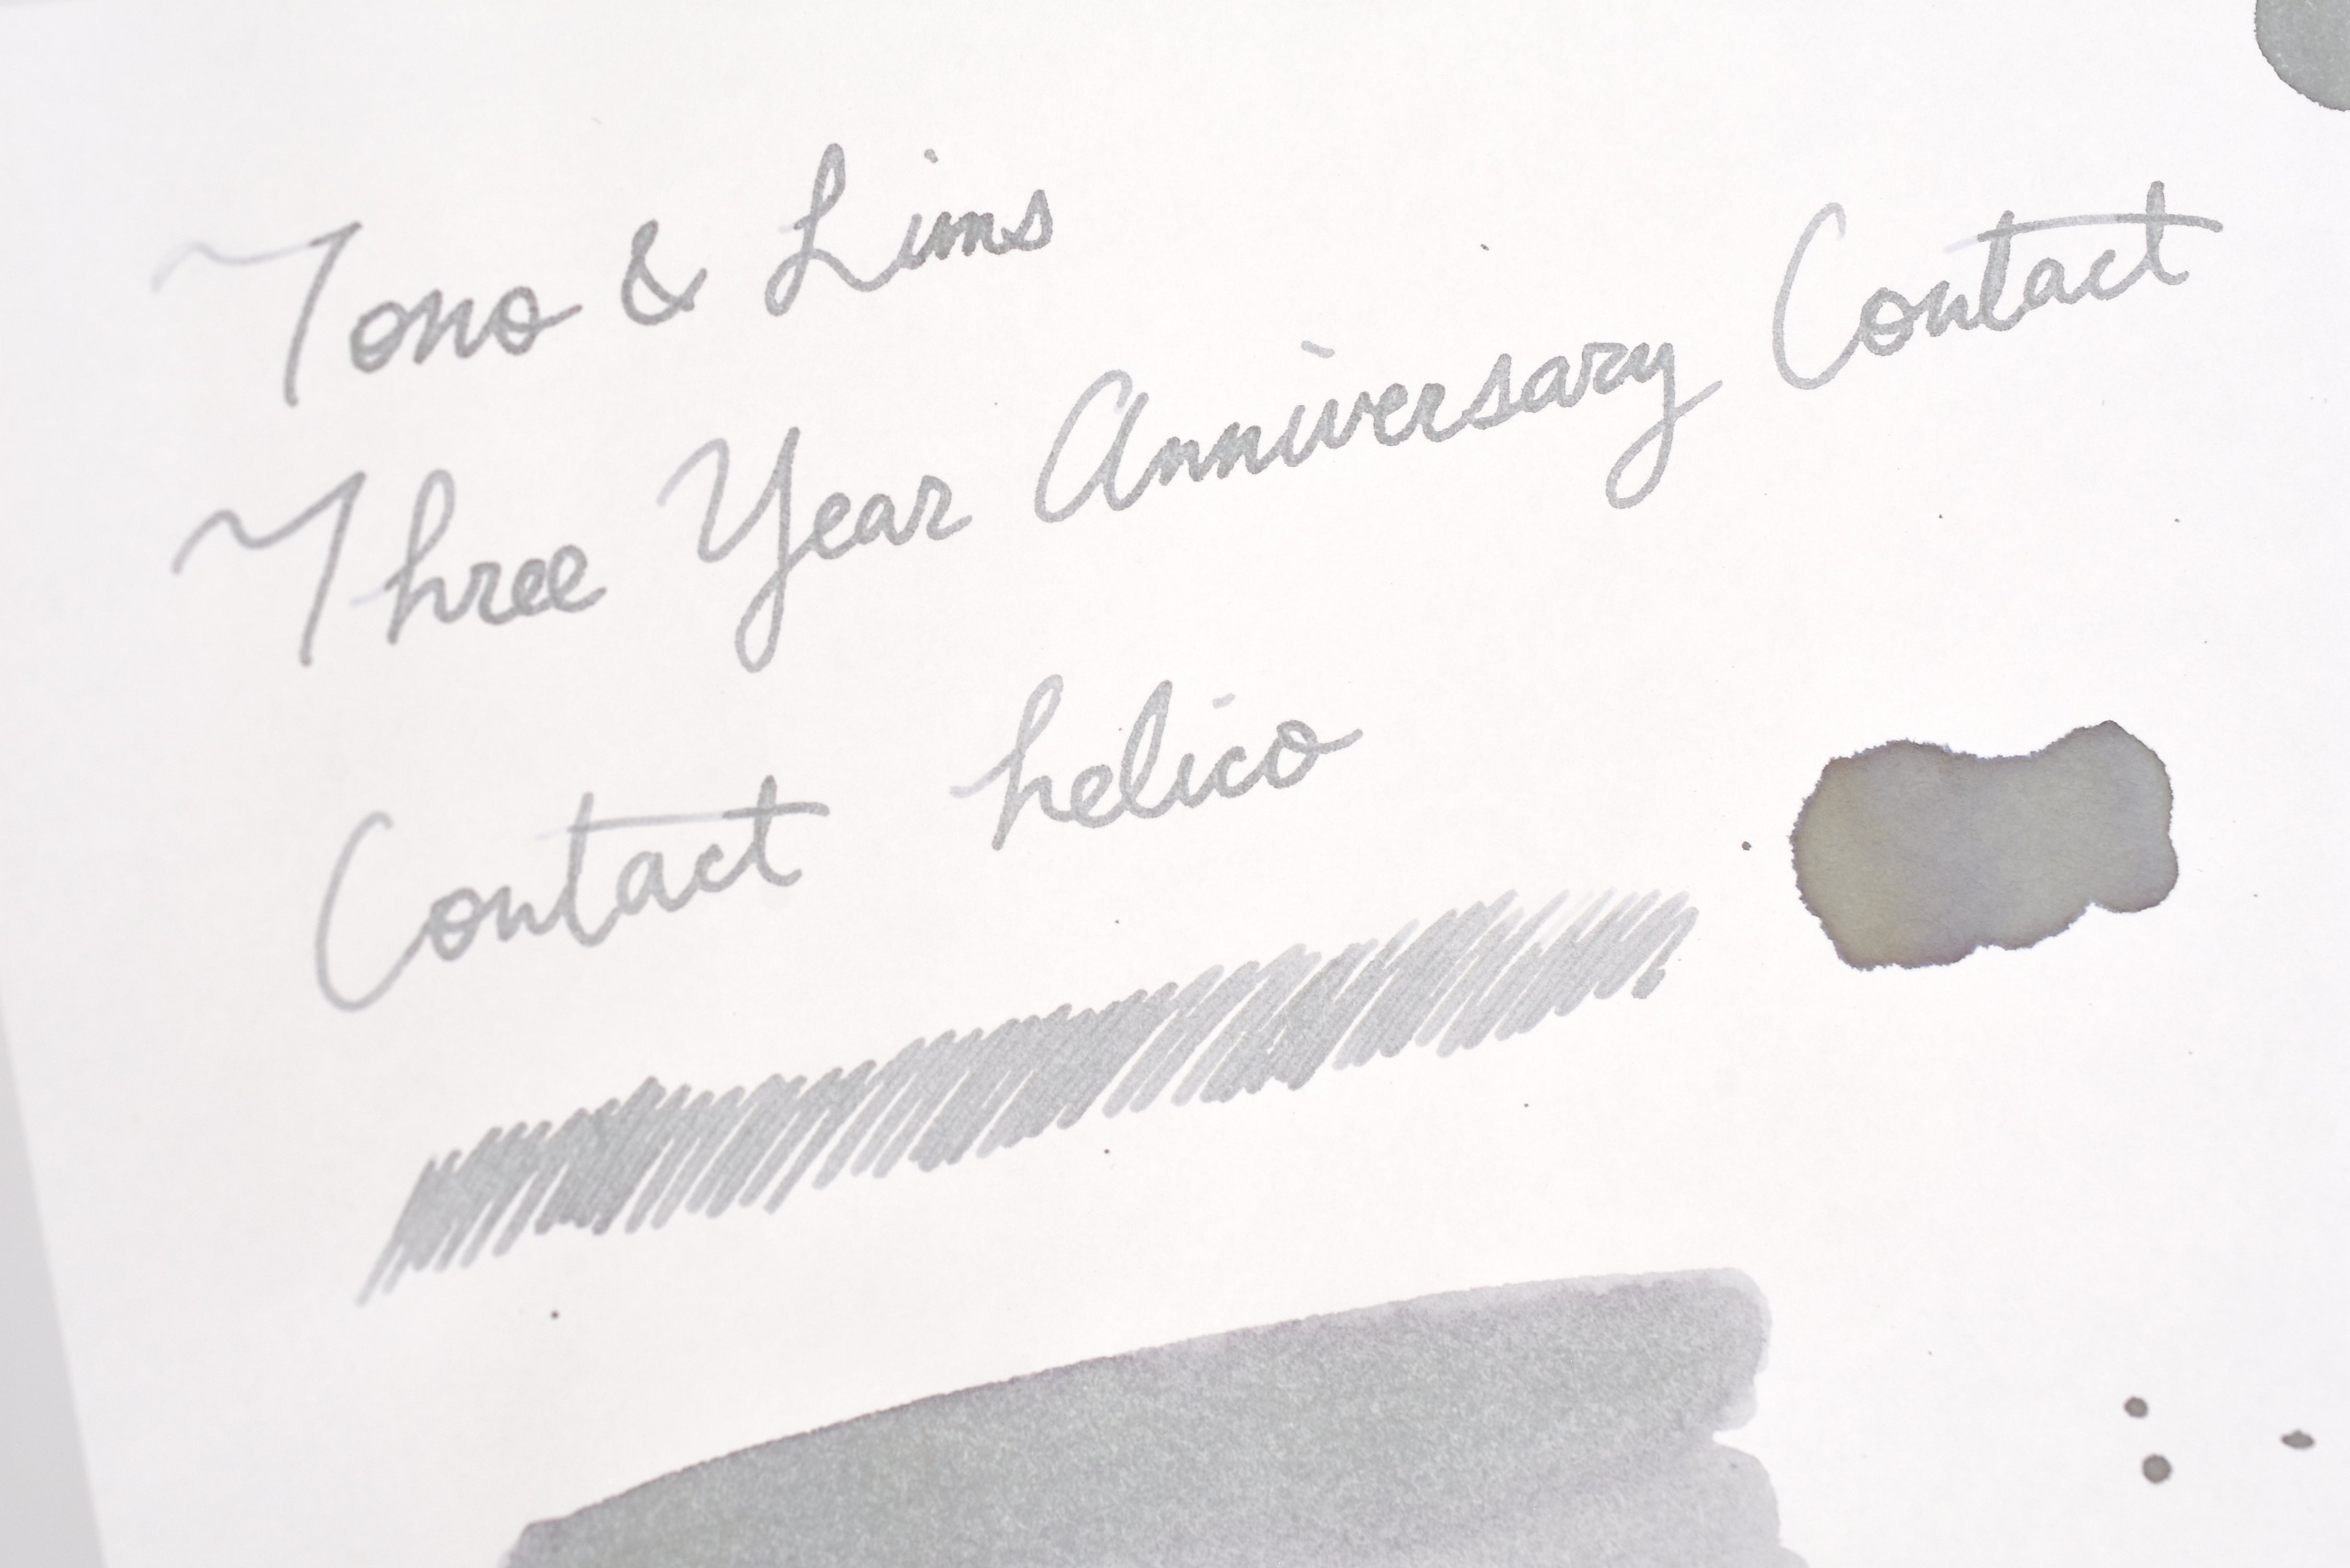 Tono & Lims
Three Year Anniversary Contact
Contact helico